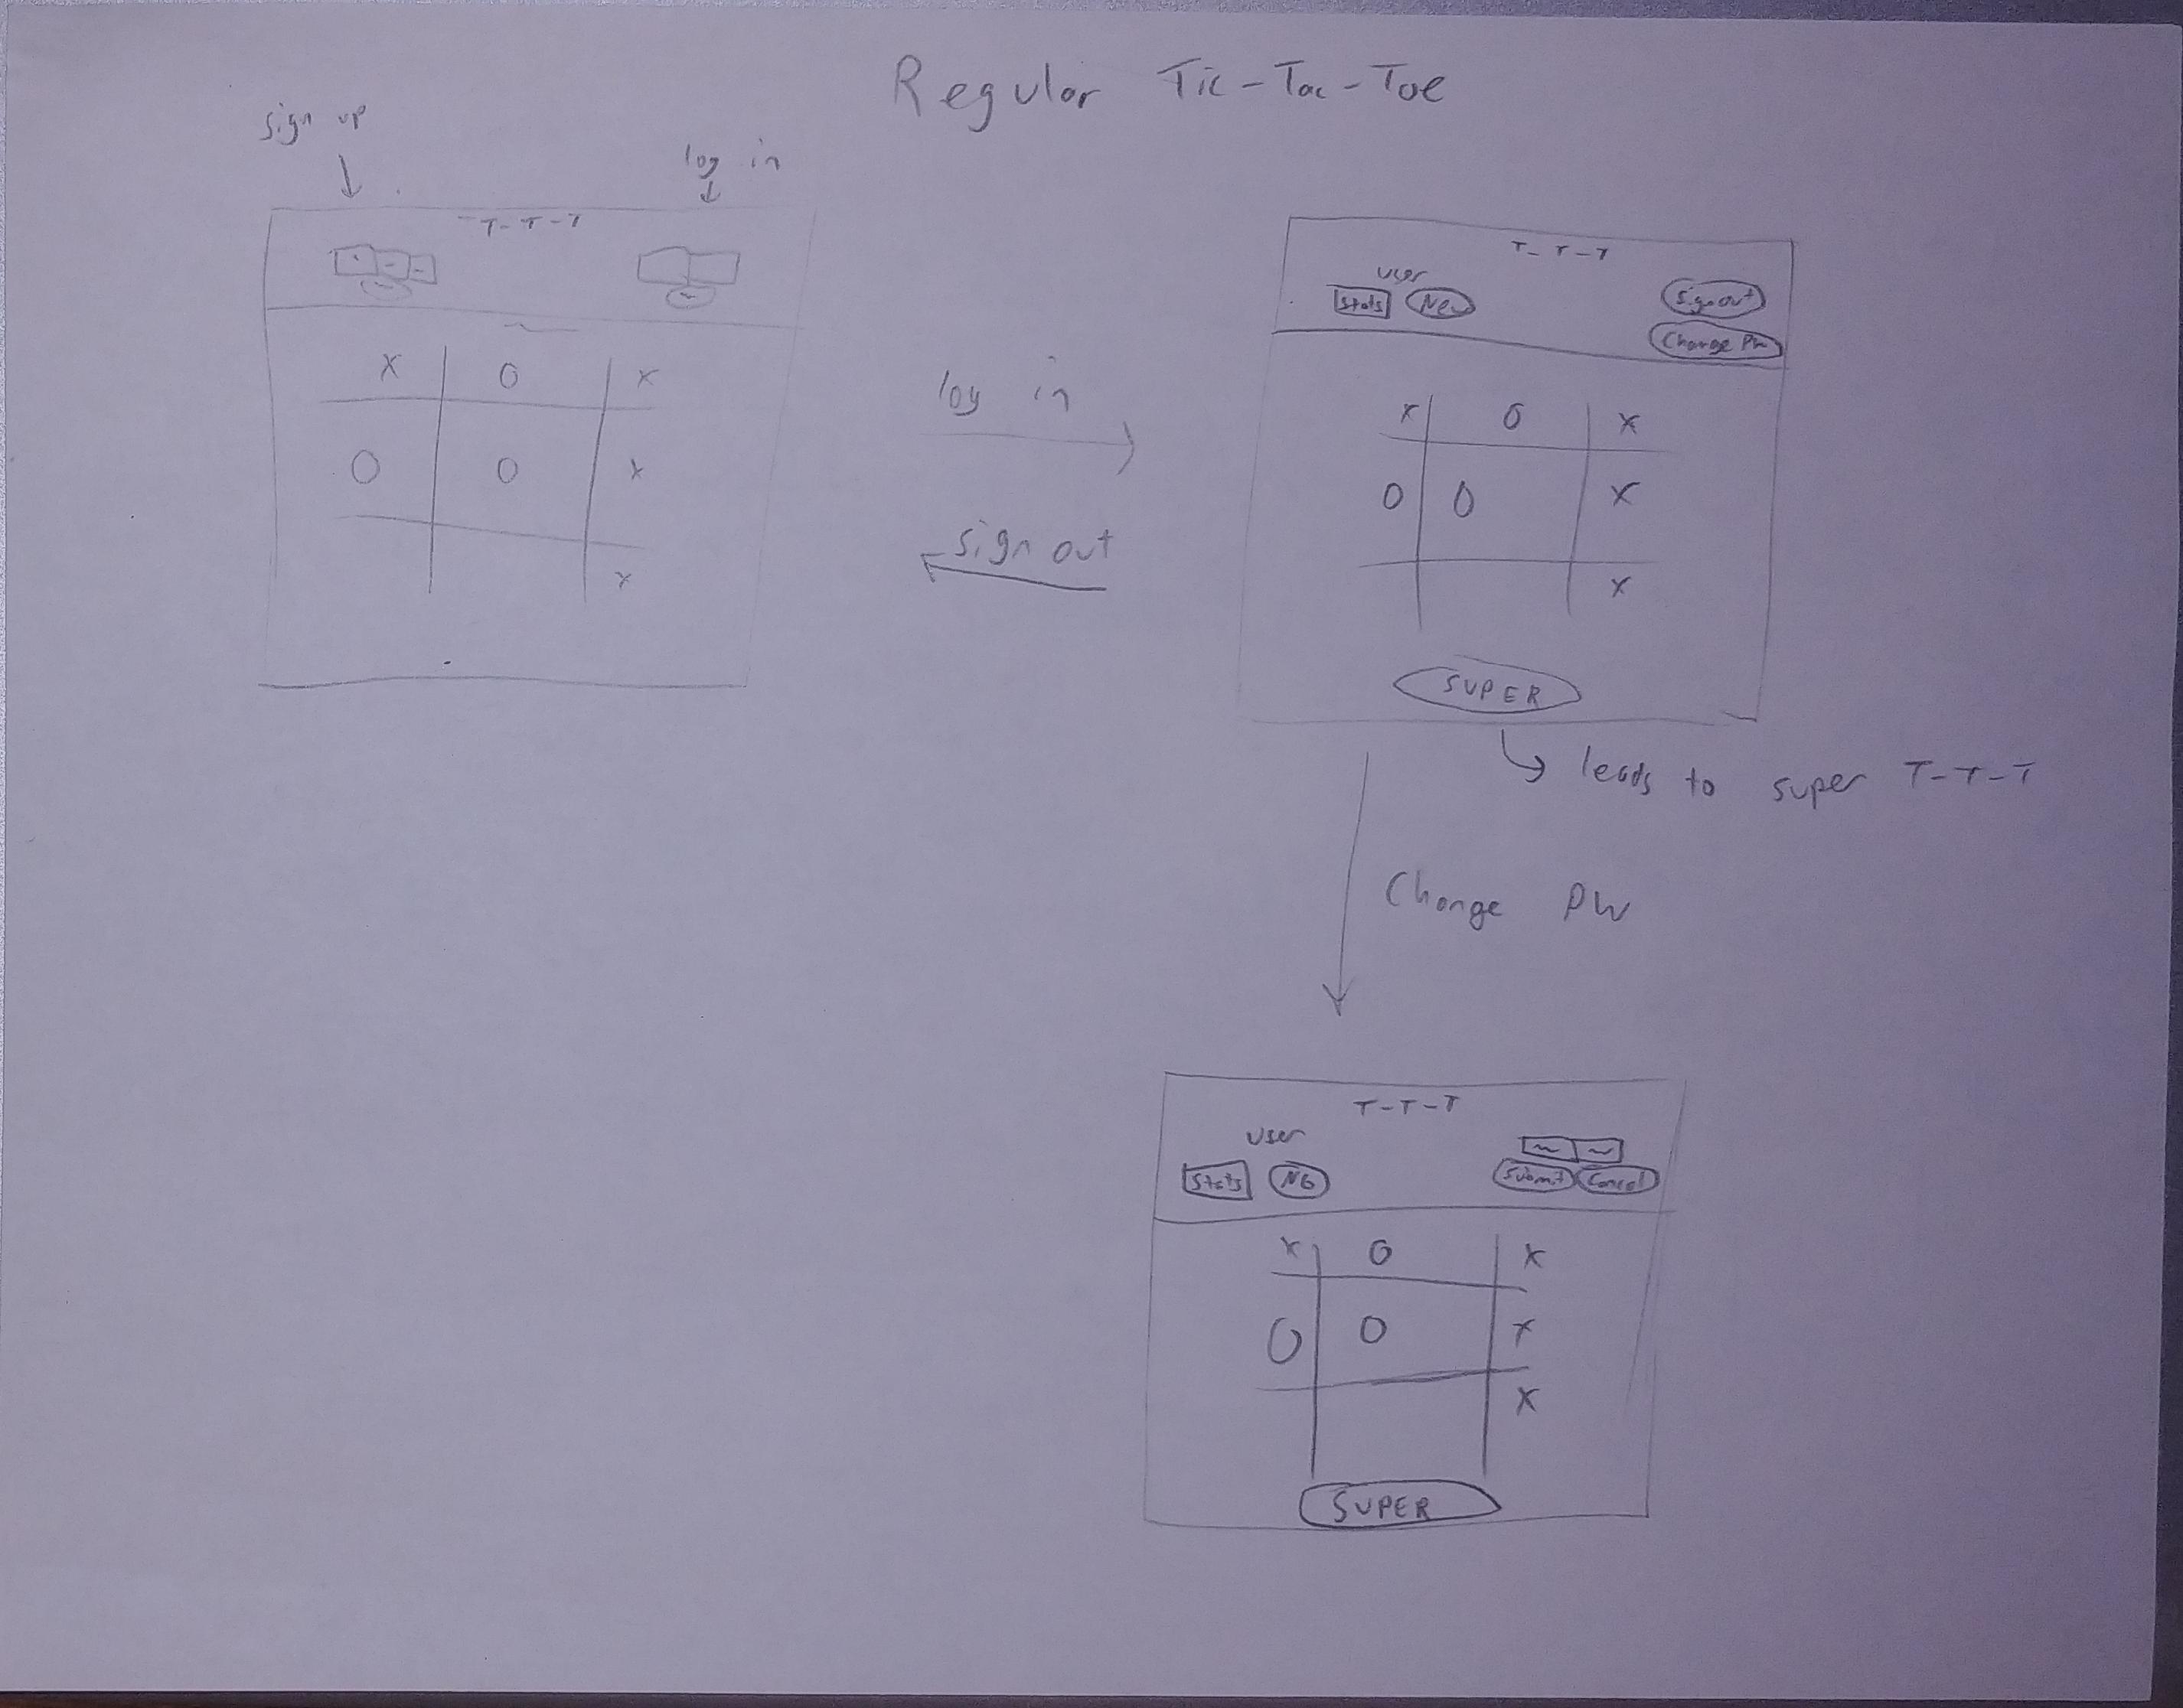 Regular Tic-Tac-Toe
sign up
log in
T-T-T
X O X
O O X
X
log in
sign out
T-T-T
user
Stats New
Sign out
Change PW
X O X
O O X
X
SUPER
leads to super T-T-T
Change PW
T-T-T
User
Stats NG
Submit Cancel
X O X
O O X
X
SUPER